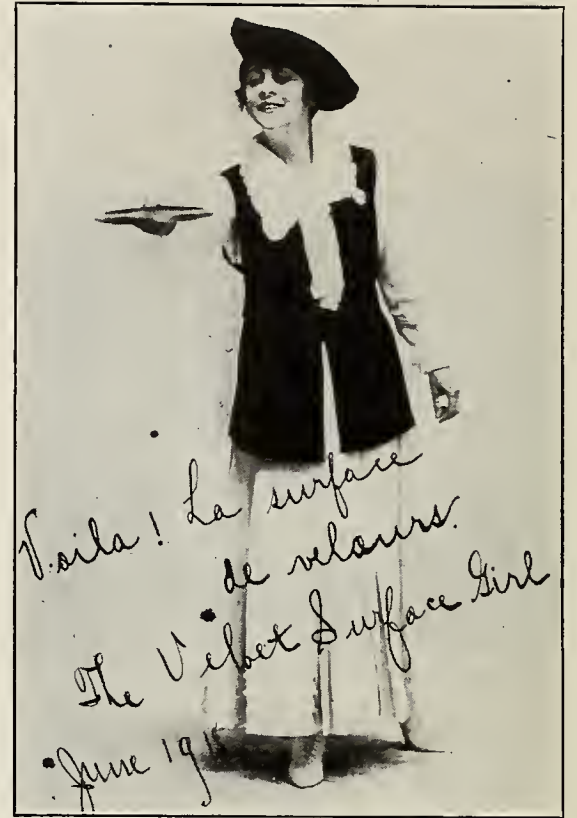 Voila! La surface
de velours.
The Velvet Surface Girl
June